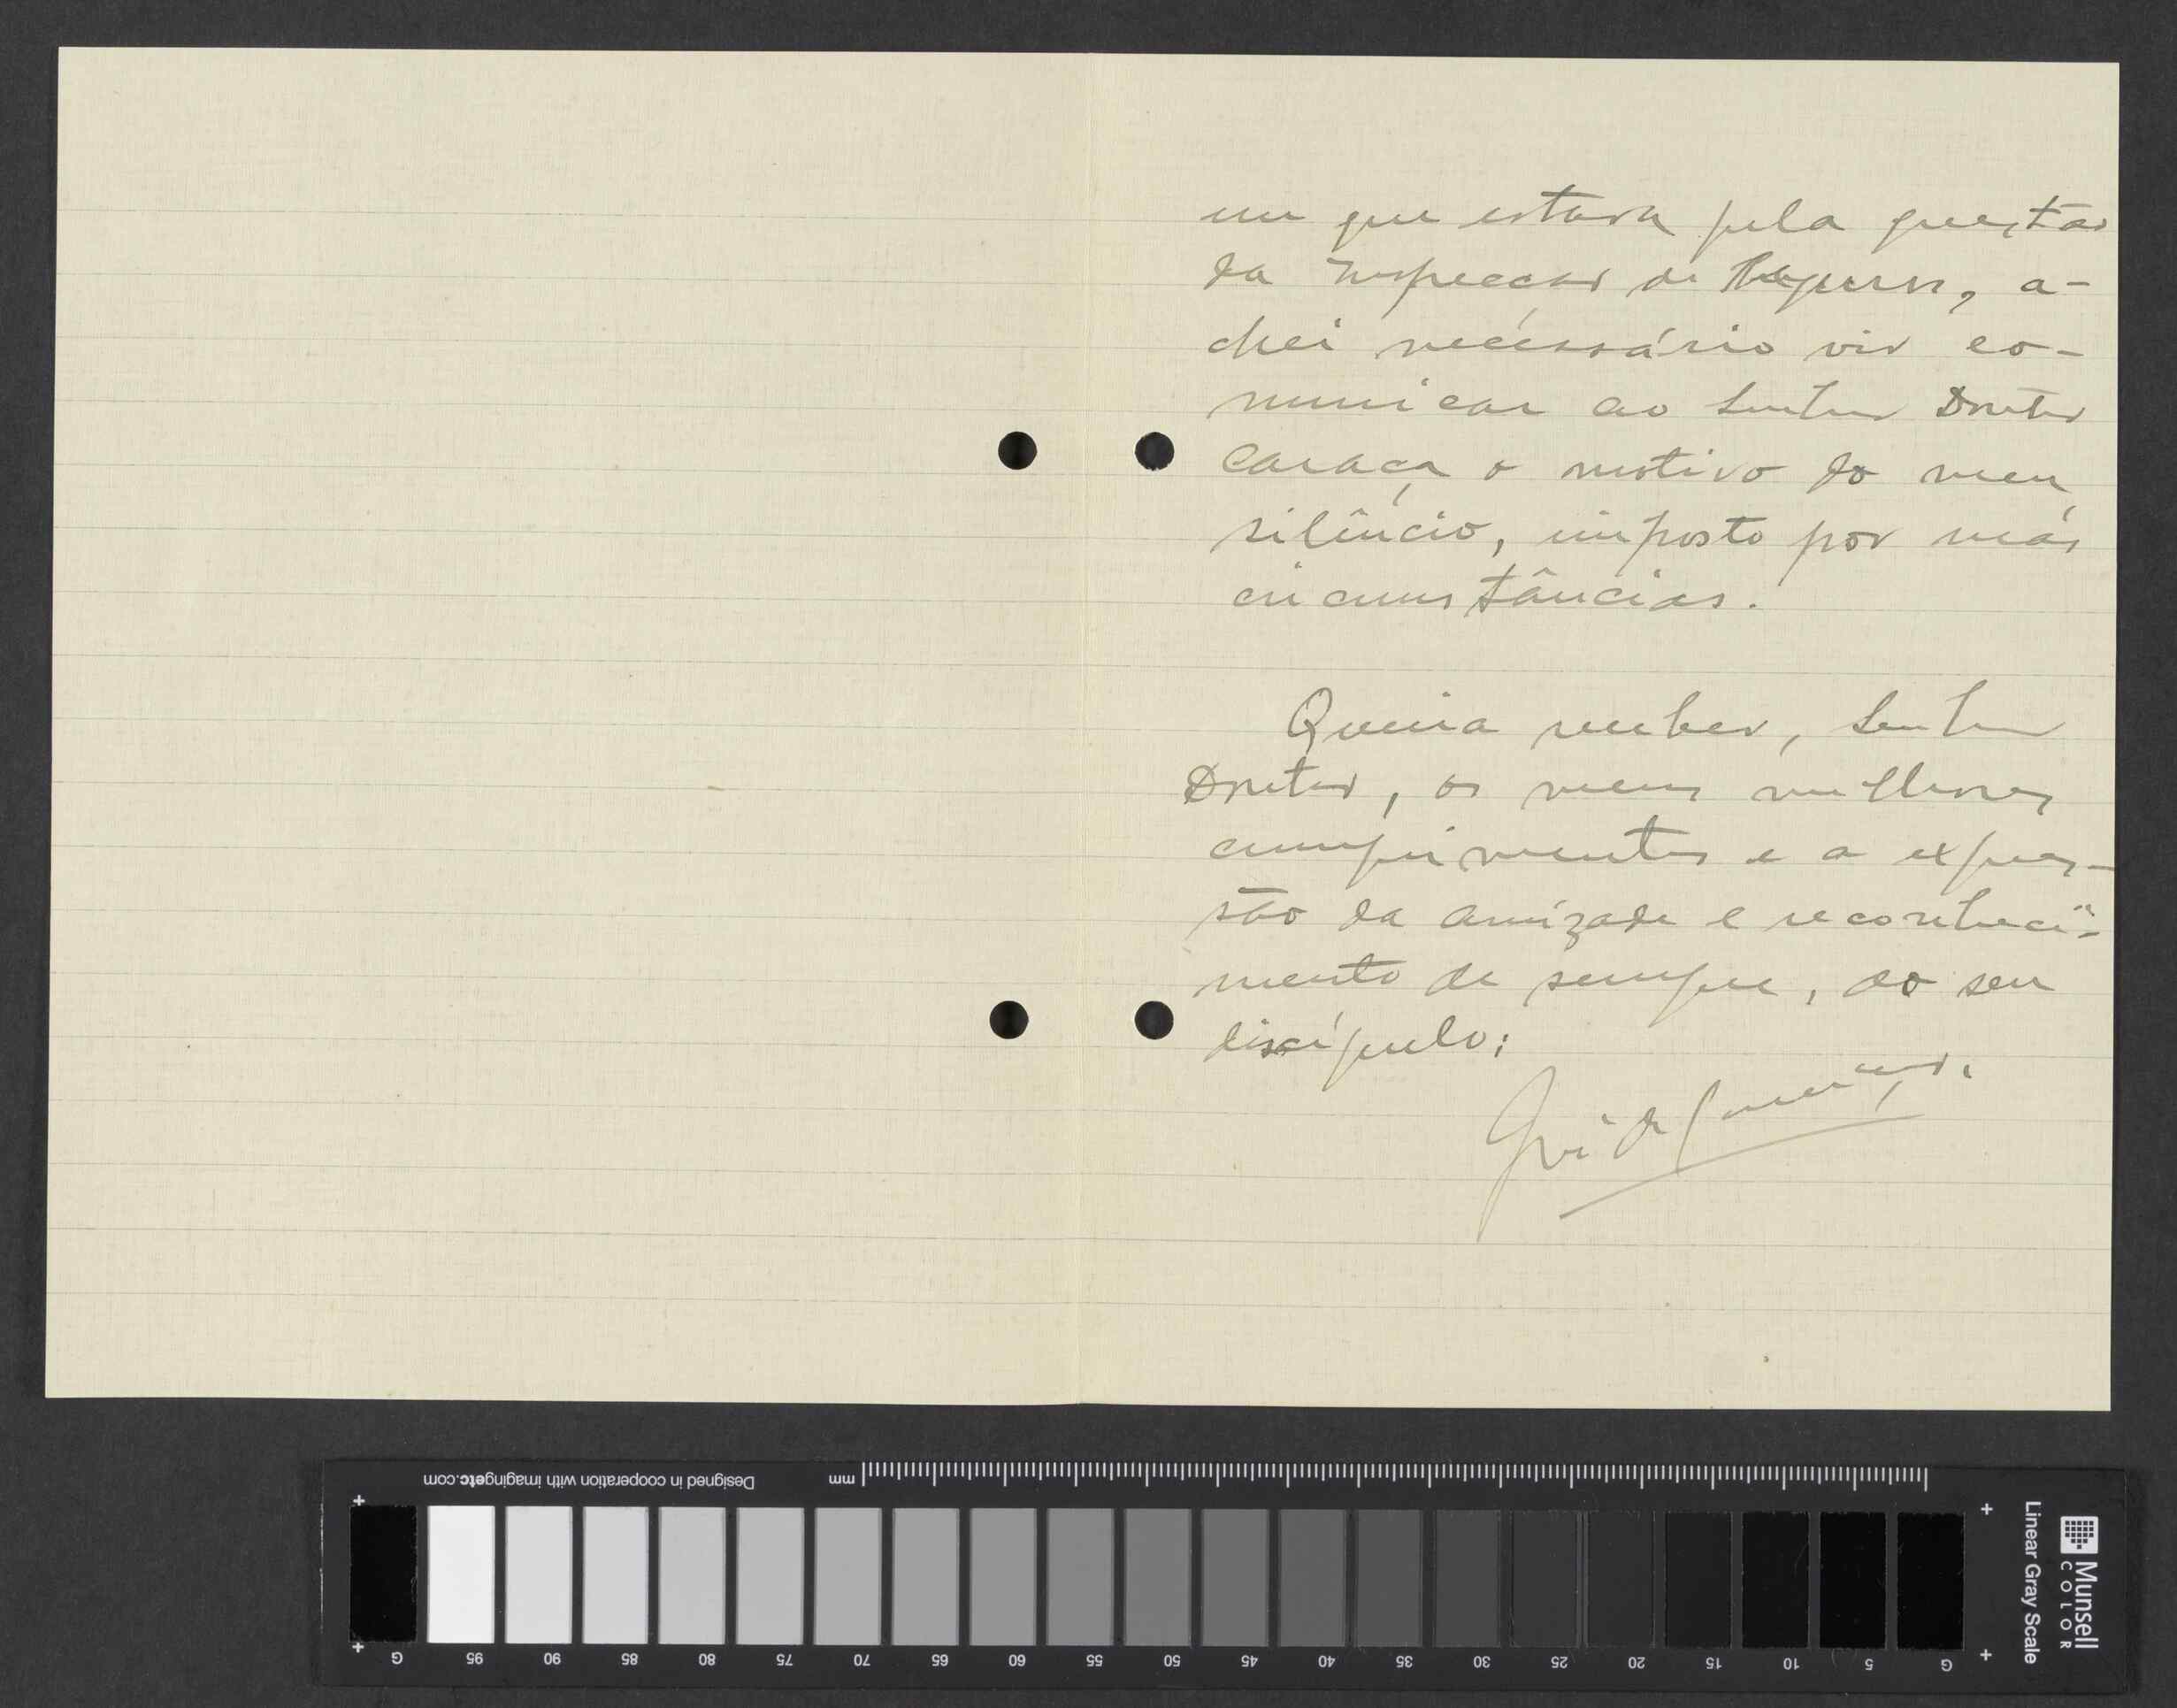 em que estava pela questão
da Inspecção de Seguros, a-
chei necessário vir co-
municar ao Senhor Doutor
Caraça o motivo do meu
silêncio, imposto por más
circunstâncias.
Queira receber, Senhor
Doutor, os meus melhores
cumprimentos e a expres-
são da amizade e reconheci-
mento de sempre, do seu
discípulo:
Designed in cooperation with imagingetc.com
mm
G 95 90 85 80 75 70 65 60 55 50 45 40 35 30 25 20 15 10 5 G
Linear Gray Scale
Munsell
COLOR